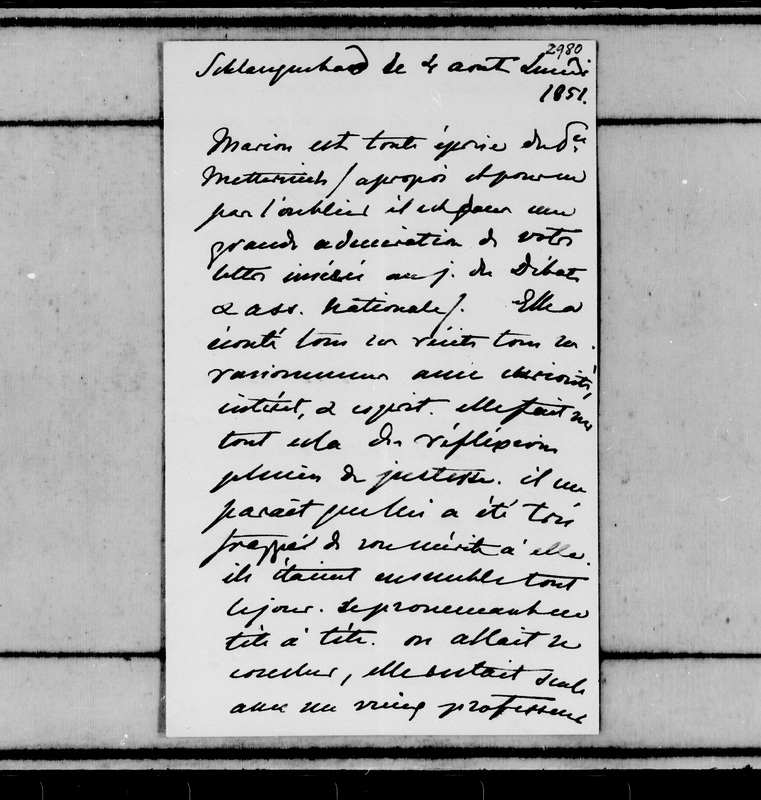 2980
Schlangenbad le 4 août Lundi
1851.
Marion est toute éprise du Pce
Metternich / apropos et pour ne
pas l'oublier il est dans une
grande admiration de votre
lettre insérée au j. des Débats
& ass. Nationale /. Elle a
écouté tous ses récits tous ses
raisonnemens avec curiosité,
intérêt, & esprit. elle fait sur
tout cela des réflexions
pleines de justesse. il me
parait que lui a été très
frappé de son mérite à elle.
ils étaient ensemble tout
le jour. se promenant en
tête à tête. on allait se
coucher, elle restait seule
avec un vieux professeur